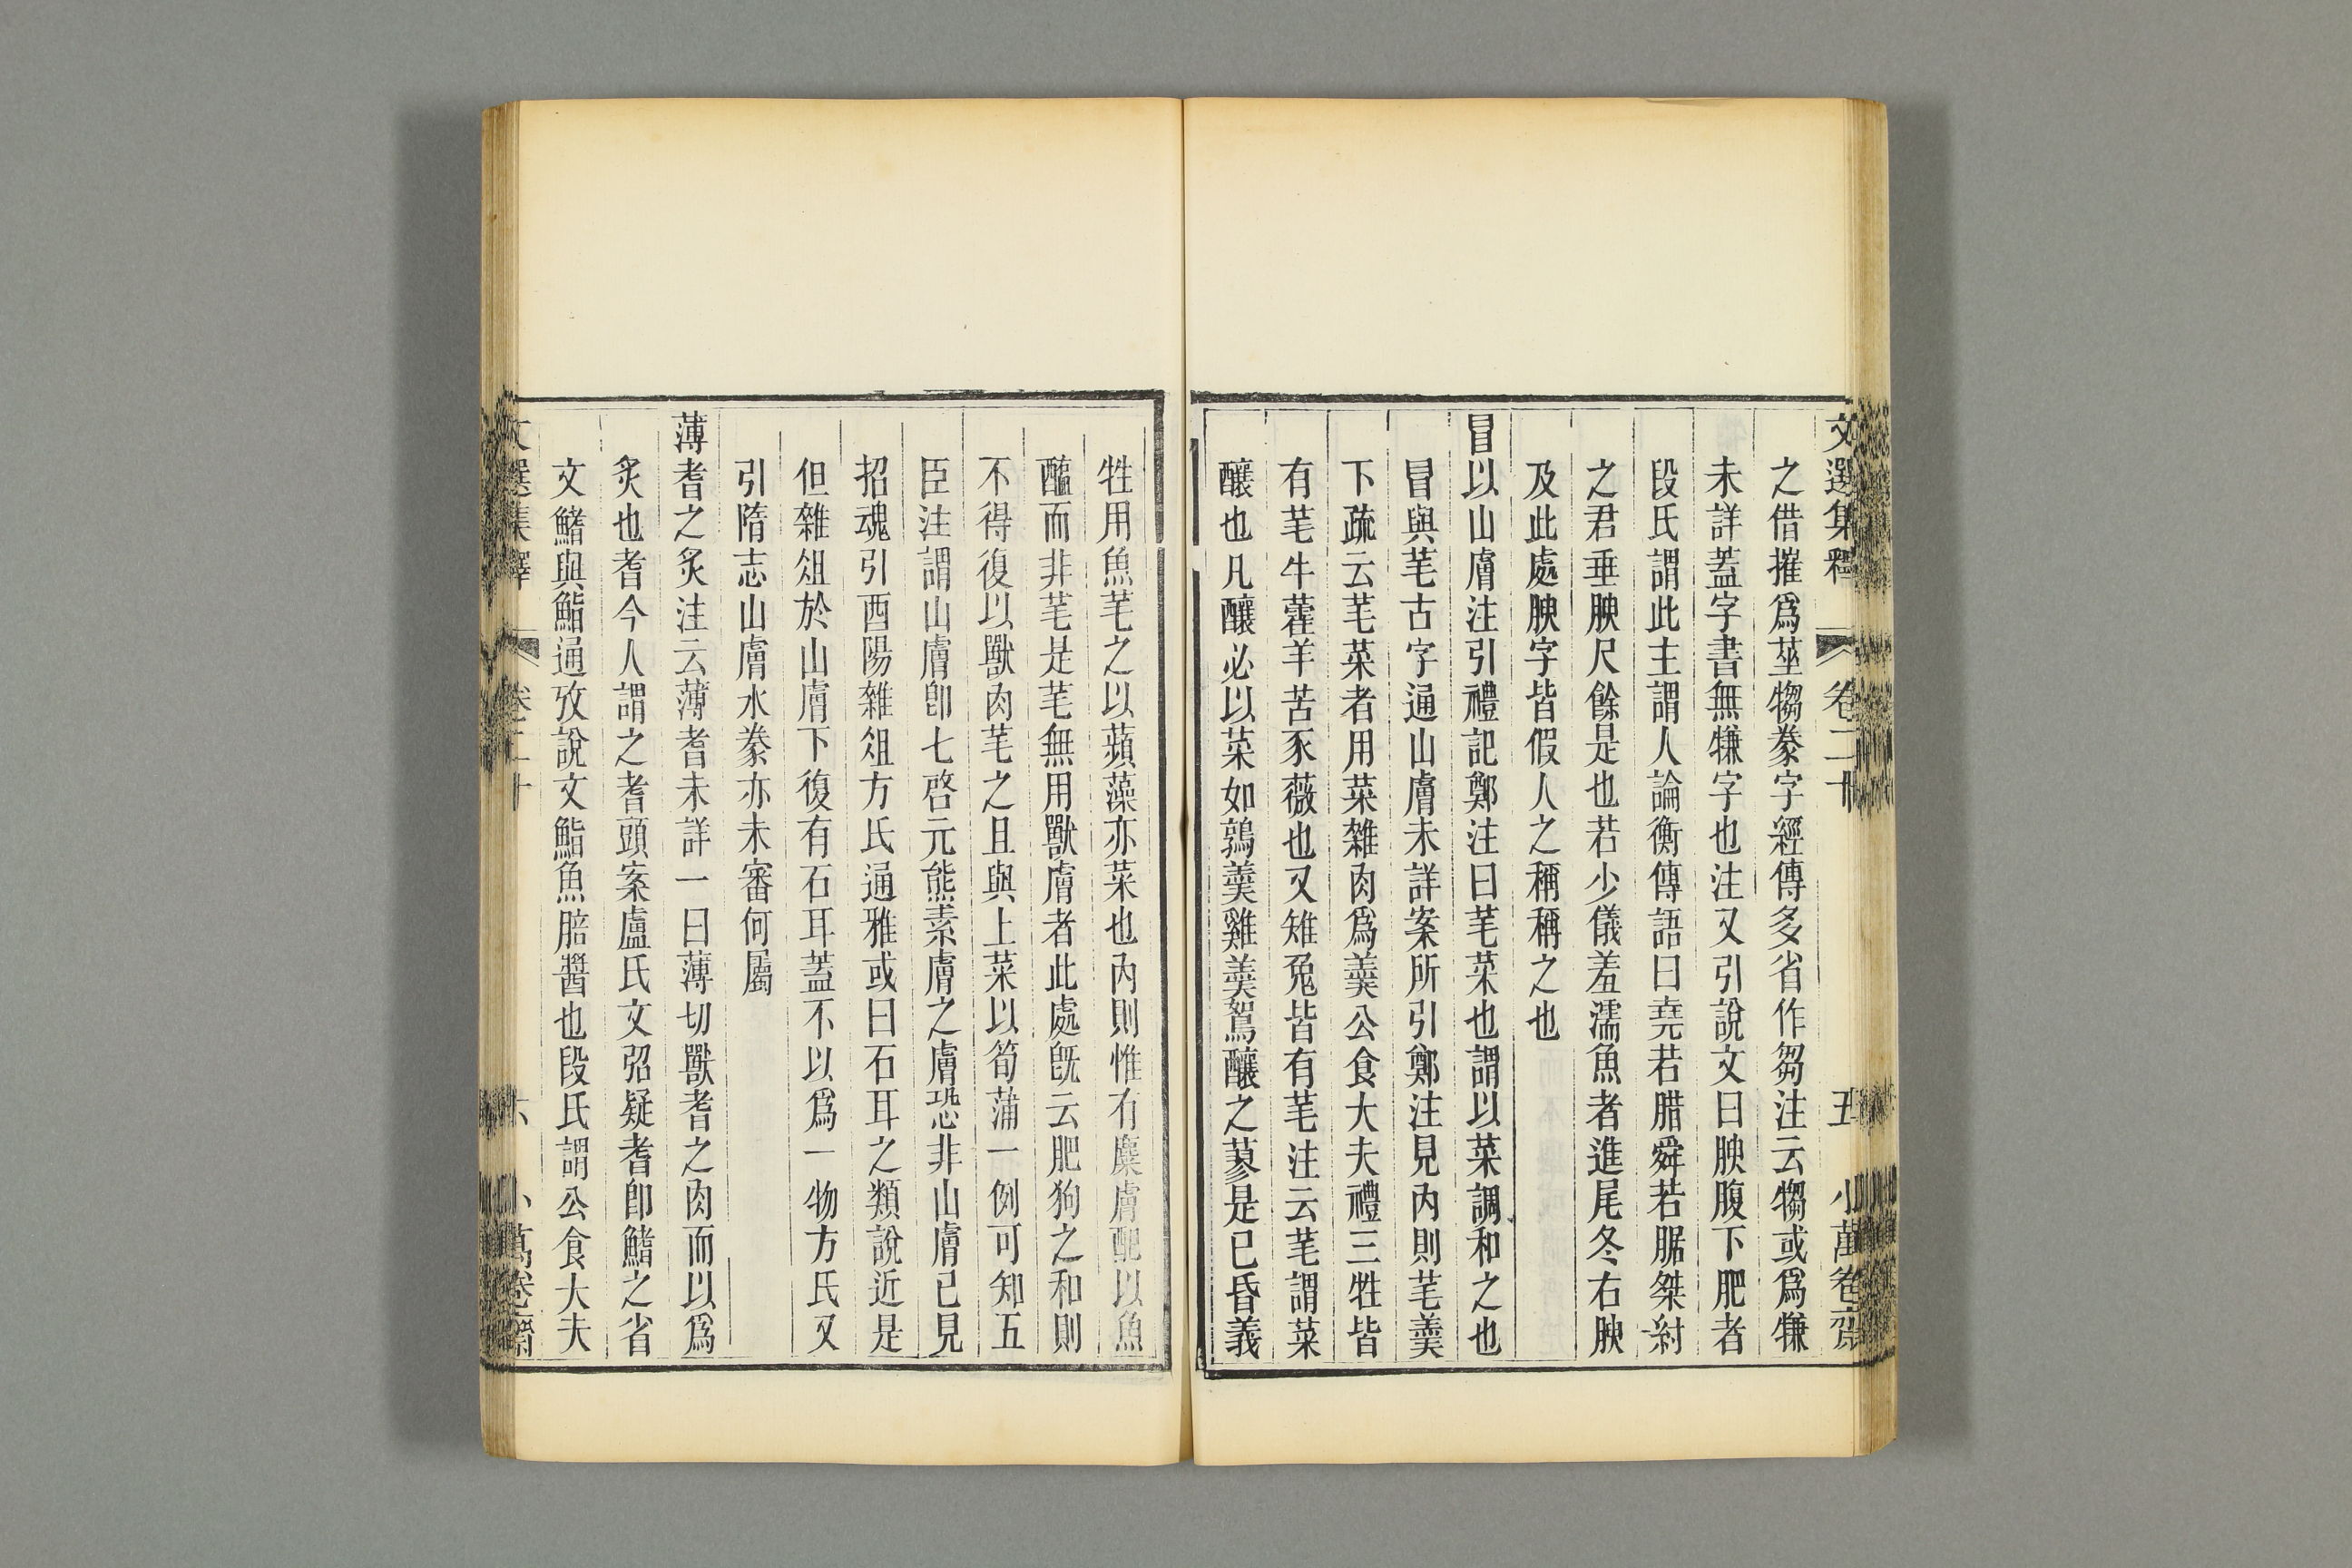 文選集釋 卷二十 五 小萬卷齋
之借摧爲莝犓豢字經傳多省作芻注云犓或爲㹌
未詳蓋字書無㹌字也注又引說文曰腴腹下肥者
段氏謂此主謂人論衡傳語曰堯若腊舜若腒桀紂
之君垂腴尺餘是也若少儀羞濡魚者進尾冬右腴
及此處腴字皆假人之稱稱之也
冒以山膚注引禮記鄭注曰芼菜也謂以菜調和之也
冒與芼古字通山膚未詳案所引鄭注見內則芼羹
下疏云芼菜者用菜雜肉爲羹公食大夫禮三牲皆
有芼牛藿羊苦豕薇也又雉兔皆有芼注云芼謂菜
釀也凡釀必以菜如鶉羹雞羹鴽釀之蓼是已昏義
牲用魚芼之以蘋藻亦菜也內則惟有麋膚配以魚
醢而非芼是芼無用獸膚者此處旣云肥狗之和則
不得復以獸肉芼之且與上菜以筍蒲一例可知五
臣注謂山膚卽七啓元熊素膚之膚恐非山膚已見
招魂引酉陽雜俎方氏通雅或曰石耳之類說近是
但雜俎於山膚下復有石耳蓋不以爲一物方氏又
引隋志山膚水豢亦未審何屬
薄耆之炙注云薄耆未詳一曰薄切獸耆之肉而以爲
炙也耆今人謂之耆頭案盧氏文弨疑耆卽鰭之省
文鰭與鮨通攷說文鮨魚䏽醬也段氏謂公食大夫
文選集釋 卷二十 六 小萬卷齋